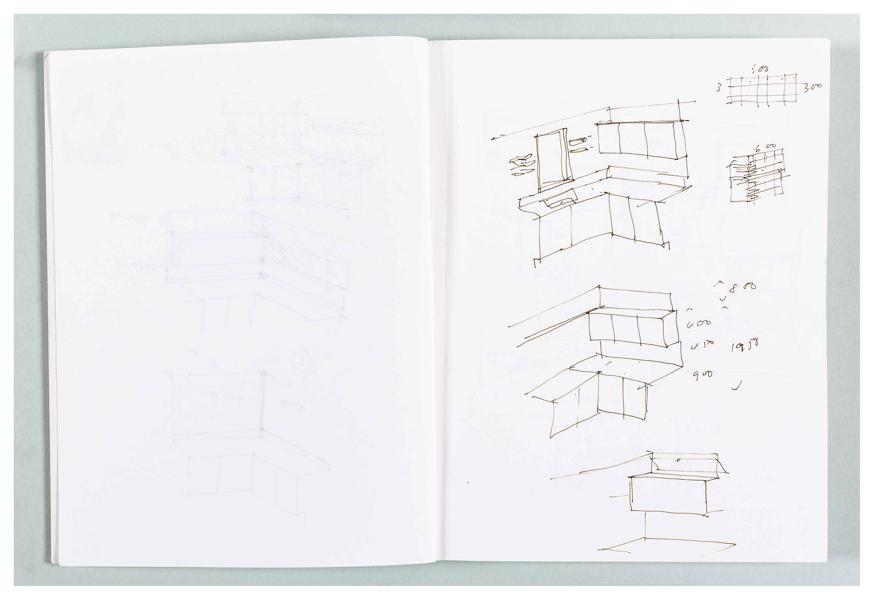 500
3 300
600
1800
400
450 1950
900